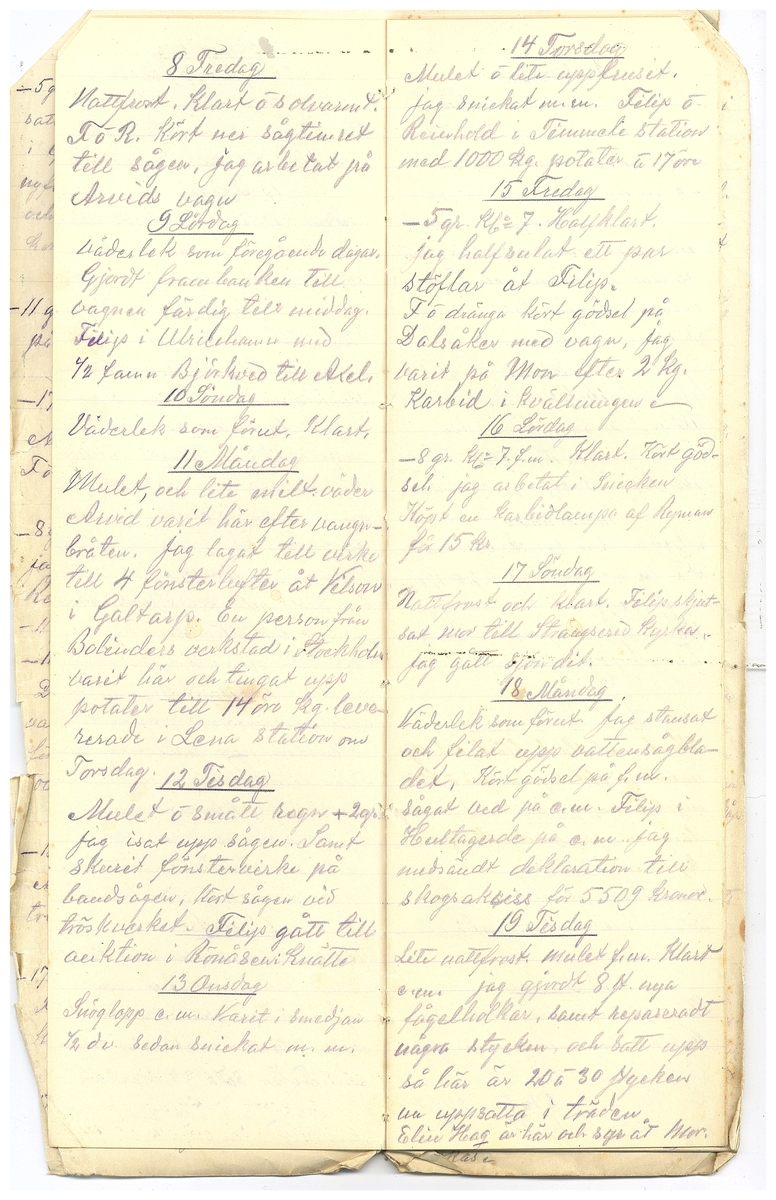 8 Fredag
Nattfrost. Klart ö solvarmt.
F ö R. Kört ner sågtimret
till sågen. jag arbetat på
Arvids vagn
9 Lördag
Väderlek som föregående dagar.
Gjordt frambanken till
vagnen färdig till middag.
Filip i Ulricehamn med
1/2 famn Björkved till Axel.
10 Söndag
Väderlek som förut. Klart.
11 Måndag
Mulet, och lite milt väder
Arvid varit här efter vangn-
bråten. jag lagat till virke
till 4 fönsterlufter åt Nelson
i Galtarp. En person från
Bolinders verkstad i Stockholm
varit här och tingat upp
potater till 14 öre kg. leve-
rerade i Lena station om
Torsdag.
12 Tisdag
Mulet ö smått regn +2gr.
jag isat upp sågen. Samt
skurit fönstervirke på
bandsågen, kört sågen vid
tröskverket. Filip gått till
auktion i Rönåsen Knätte
13 Onsdag
Snöglopp e.m. Varit i smedjan
1/2 da. sedan snickat m. m.
14 Torsdag
Mulet ö lite uppfruset.
jag snickat m.m. Filip ö
Reinhold i Timmele station
med 1000 kg. potater à 17 öre
15 Fredag
-5 gr. Kl. 7. Halfklart.
jag halfsulat ett par
stöflar åt Filip.
F ö dränga kört gödsel på
Dalsåker med vagn. jag
varit på Mon efter 2 kg.
Karbid i kvällningen
16 Lördag
-8 gr. Kl. 7 f.m. Klart. Kört göd-
sel. jag arbetat i Snicken
Köpt en karbidlampa af Ryman
för 15 kr.
17 Söndag
Nattfrost och klart. Filip skjut-
sat mor till Strängsered Kyrka.
jag gått sjön dit.
18 Måndag
Väderlek som förut. Jag stansat
och filat upp vattensågbla-
det. Kört gödsel på f.m.
sågat ved på e.m. Filip i
Hultagerde på e.m. jag
nedsändt deklaration till
skogsaksiss för 5509 kronor.
19 Tisdag
Lite nattfrost. mulet f.m. Klart
e.m. jag gjordt 8 st. nya
fågelholkar, samt repareradt
några stycken och satt upp
så här är 20 à 30 stycken
nu uppsatta i träden
Elin Hag är här och syr åt Mor.